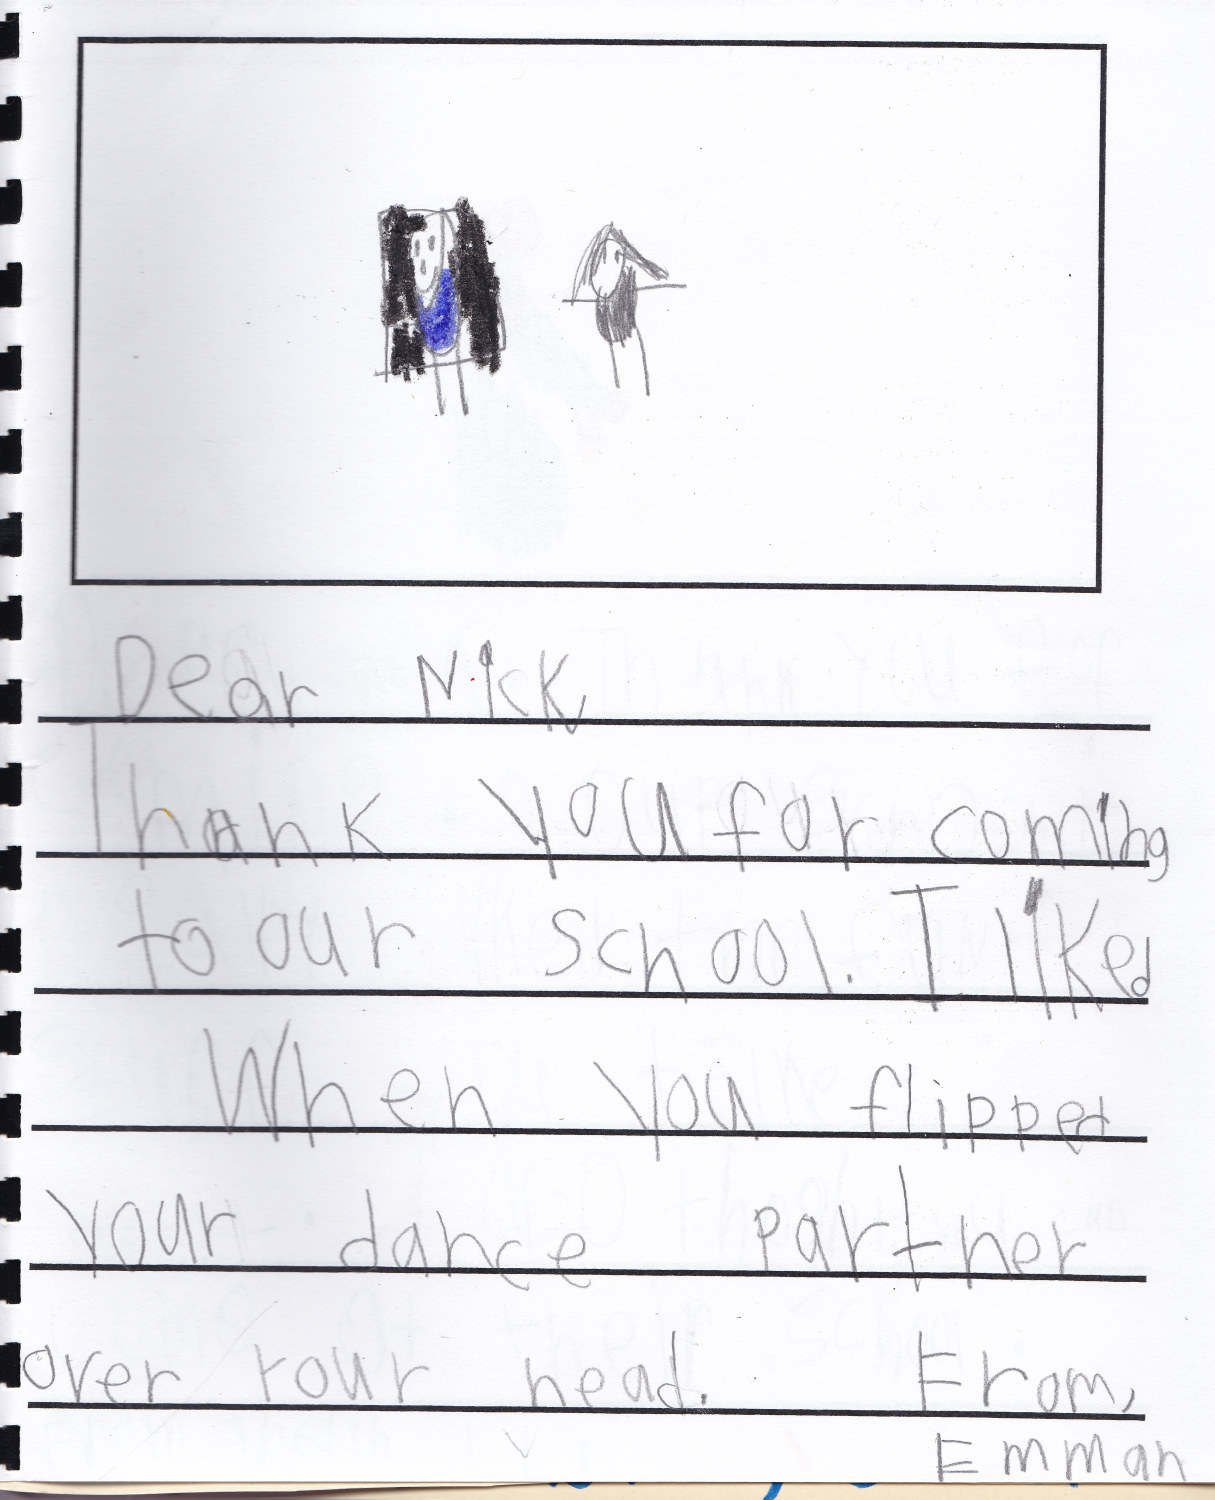 Dear Nick
Thank you for coming
to our school. I liked
When you flipped
your dance partner
over rour head. From,
Emman